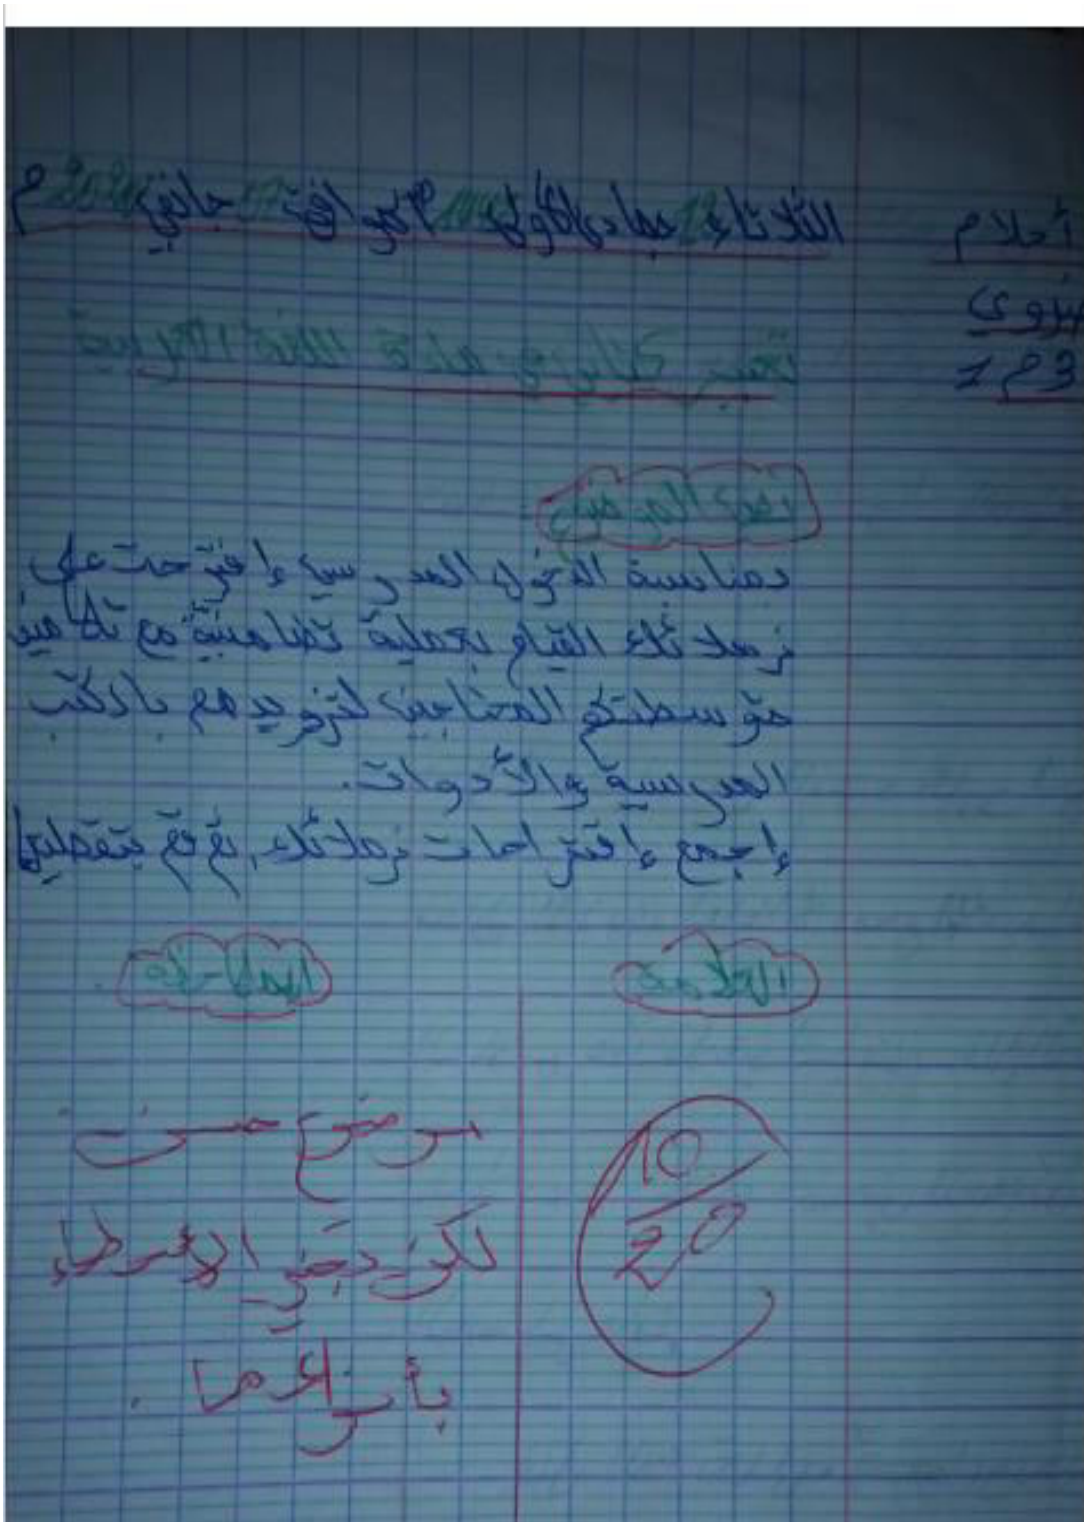 أحلام
3م2
الثلاثاء جمادى الأولى الموافق جانفي م
تعبير كتابي في مادة اللغة العربية
نص الموضوع
بمناسبة الدخول المدرسي إقترحت على
زملائك القيام بعملية تضامنية مع تلاميذ
متوسطتكم المحتاجين لتزويدهم بالكتب
المدرسية والأدوات.
إجمع إقتراحات زملائك, ثم قم بتفصيلها
العلامة
الملاحظة
10/20
موضوع حسن
لكن تجنبي الأخطاء
بأنواعها.